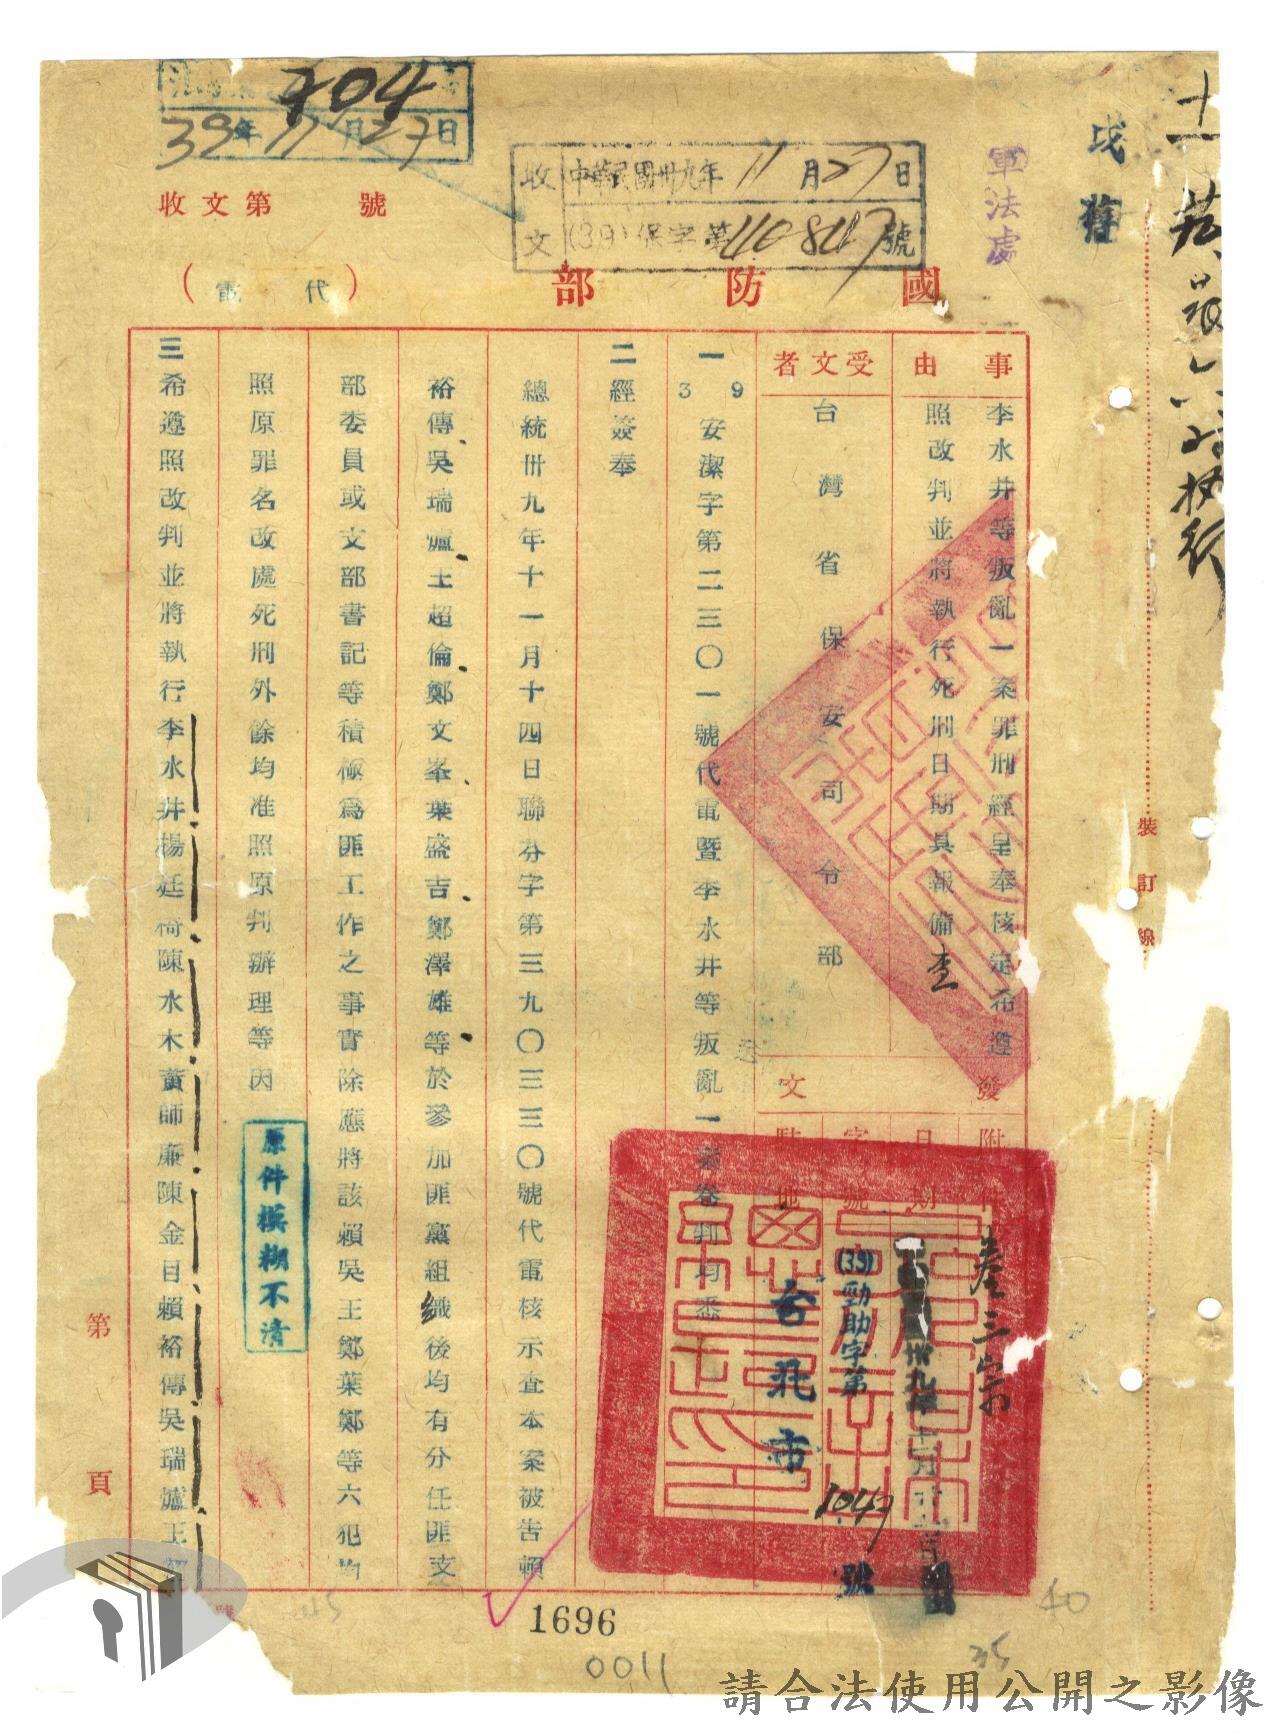 704
39年11月27日
收文第　　號
收文
中華民國卅九年11月27日
(39)保字第110847號
軍法處
國防部
(代電)
事由
李水井等叛亂一案罪刑經呈奉核定希遵
照改判並將執行死刑日期具報備查
受文者
台灣省保安司令部
發文
附件
叁三宗
日期
卅九年十一月
字號
(39)勁助字第1047號
駐地
台北市
一39安潔字第二三〇一號代電暨李水井等叛亂一案卷判均悉
二經簽奉
總統卅九年十一月十四日聯芬字第三九〇三三〇號代電核示查本案被告賴
裕傳吳瑞爐王超倫鄭文峯葉盛吉鄭澤雄等於參加匪黨組織後均有分任匪支
部委員或支部書記等積極爲匪工作之事實除應將該賴吳王鄭葉鄭等六犯均
照原罪名改處死刑外餘均准照原判辦理等因
原件模糊不清
三希遵照改判並將執行李水井楊廷椅陳水木黃師廉陳金目賴裕傳吳瑞爐王超
第　　頁
裝訂線
1696
0011
請合法使用公開之影像